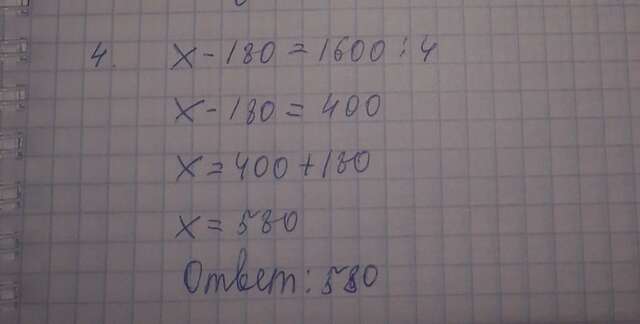 4. x - 180 = 1600 : 4
x - 180 = 400
x = 400 + 180
x = 580
Ответ: 580